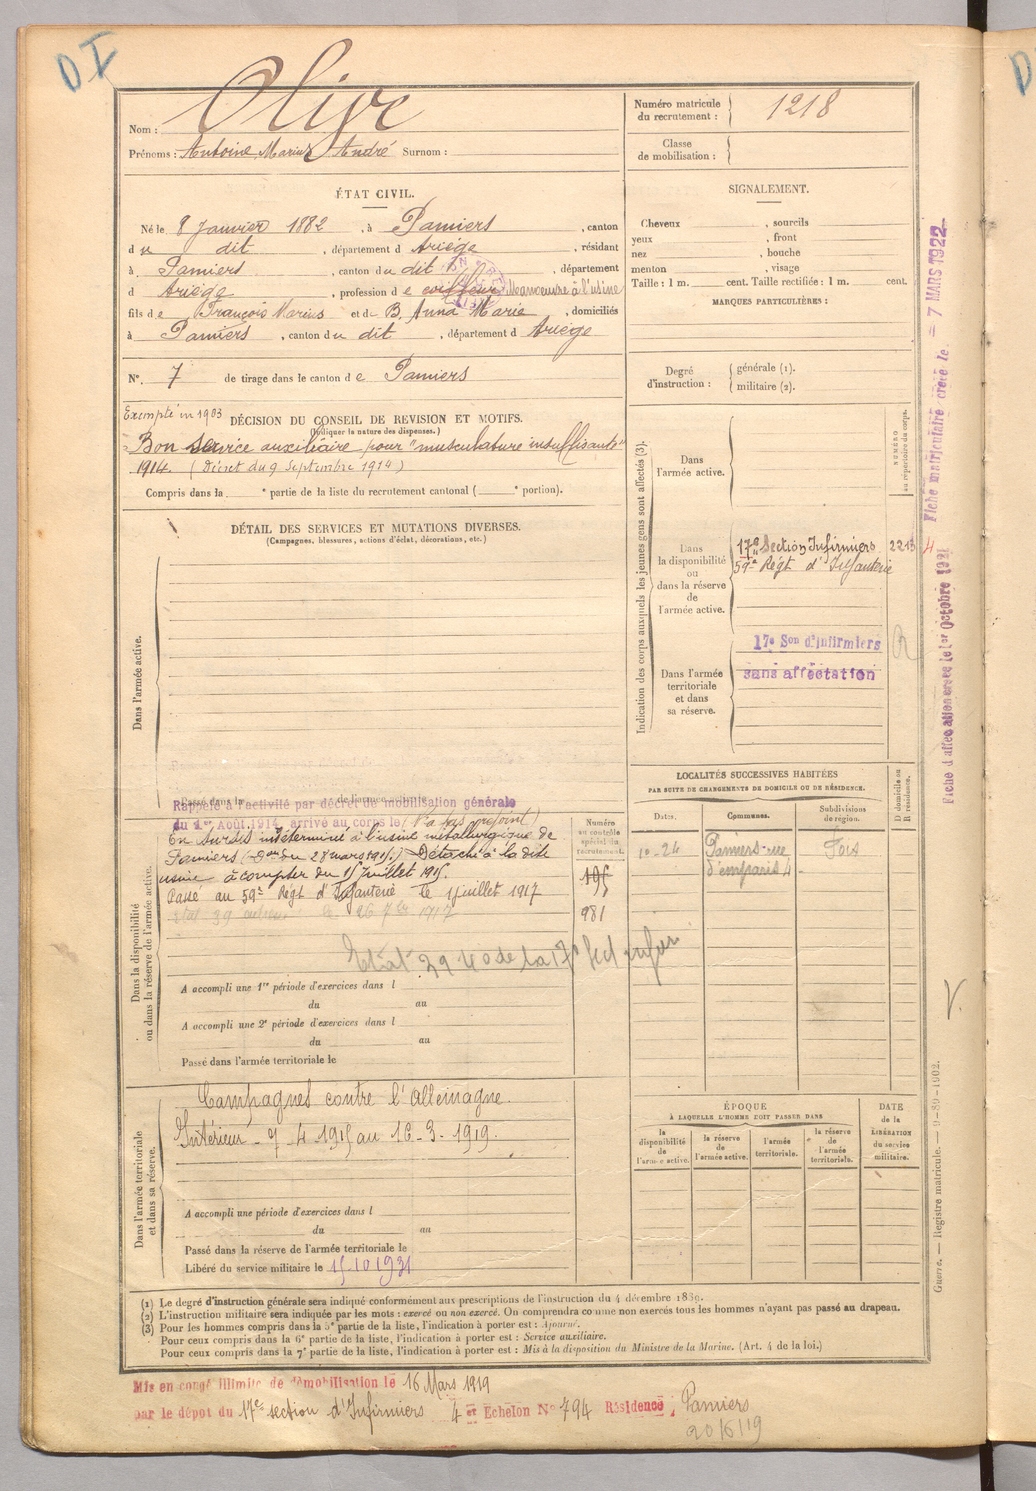 D I
Nom : Olive
Prénoms : Antoine Marius André Surnom :
Numéro matricule
du recrutement : 1218
Classe
de mobilisation :
ÉTAT CIVIL.
Né le 8 Janvier 1882, à Pamiers, canton
du dit, département d Ariège, résidant
à Pamiers, canton du dit, département
d Ariège, profession de coiffeur Manoeuvre à l'usine
fils de François Marius et de B. Anna Marie, domiciliés
à Pamiers, canton du dit, département d Ariège
N°. 7 de tirage dans le canton de Pamiers
SIGNALEMENT.
Cheveux , sourcils
yeux , front
nez , bouche
menton , visage
Taille : 1 m. cent. Taille rectifiée : 1 m. cent.
MARQUES PARTICULIÈRES :
Degré
d'instruction :
générale (1).
militaire (2).
Exempté en 1903
DÉCISION DU CONSEIL DE REVISION ET MOTIFS.
(Indiquer la nature des dispenses.)
Bon service auxiliaire pour "musculature insuffisante"
1914. (Décret du 9 Septembre 1914)
Compris dans la e partie de la liste du recrutement cantonal ( e portion).
DÉTAIL DES SERVICES ET MUTATIONS DIVERSES.
(Campagnes, blessures, actions d'éclat, décorations, etc.)
Dans l'armée active.
Indication des corps auxquels les jeunes gens sont affectés (3).
NUMÉRO
au répertoire du corps.
Dans
l'armée active.
Dans
la disponibilité
ou
dans la réserve
de
l'armée active.
17e Section Infirmiers 2213
59e Régt d'Infanterie
17e Son d'Infirmiers
sans affectation
Dans l'armée
territoriale
et dans
sa réserve.
Fiche matriculaire créée le = 7 MARS 1922
Fiche d'affectation créée le 1er Octobre 1921
Rappelé à l'activité par décret de mobilisation générale
du 1er Août 1914, arrivé au corps le (N'a pas rejoint)
En Sursis indéterminé à l'usine métallurgique de
Pamiers ( du 28 mars 1915.) Détaché à la dite
usine à compter du 15 Juillet 1915.
Passé au 59e Régt d'Infanterie le 1 juillet 1917
Etat 39 le 26 7bre 1917
Etat 39 de la 17e Sect infir
Dans la disponibilité
ou dans la réserve de l'armée active.
Numéro
au contrôle
spécial du
recrutement.
195
981
A accompli une 1re période d'exercices dans l
du au
A accompli une 2e période d'exercices dans l
du au
Passé dans l'armée territoriale le
LOCALITÉS SUCCESSIVES HABITÉES
PAR SUITE DE CHANGEMENTS DE DOMICILE OU DE RÉSIDENCE.
Dates. Communes. Subdivisions
de région.
D domicile ou
R résidence.
10-24 Pamiers-rue Foix
d'emparis 4
Dans l'armée territoriale
et dans sa réserve.
Campagnes contre l'Allemagne.
Intérieur - 7 4 1915 au 16-3-1919.
A accompli une période d'exercices dans l
du au
Passé dans la réserve de l'armée territoriale le
Libéré du service militaire le 15 10 1931
ÉPOQUE
À LAQUELLE L'HOMME DOIT PASSER DANS
la
disponibilité
de
l'armée active.
la réserve
de
l'armée active.
l'armée
territoriale.
la réserve
de
l'armée
territoriale.
DATE
de la
LIBÉRATION
du service
militaire.
V.
Guerre. — Registre matricule. — 9-89-1902.
(1) Le degré d'instruction générale sera indiqué conformément aux prescriptions de l'instruction du 4 décembre 1889.
(2) L'instruction militaire sera indiquée par les mots : exercé ou non exercé. On comprendra comme non exercés tous les hommes n'ayant pas passé au drapeau.
(3) Pour les hommes compris dans la 5e partie de la liste, l'indication à porter est : Ajourné.
Pour ceux compris dans la 6e partie de la liste, l'indication à porter est : Service auxiliaire.
Pour ceux compris dans la 7e partie de la liste, l'indication à porter est : Mis à la disposition du Ministre de la Marine. (Art. 4 de la loi.)
Mis en congé illimité de démobilisation le 16 Mars 1919
par le dépot du 17e section d'Infirmiers 4 et Echelon N° 794 Résidence ; Pamiers
20/6/19